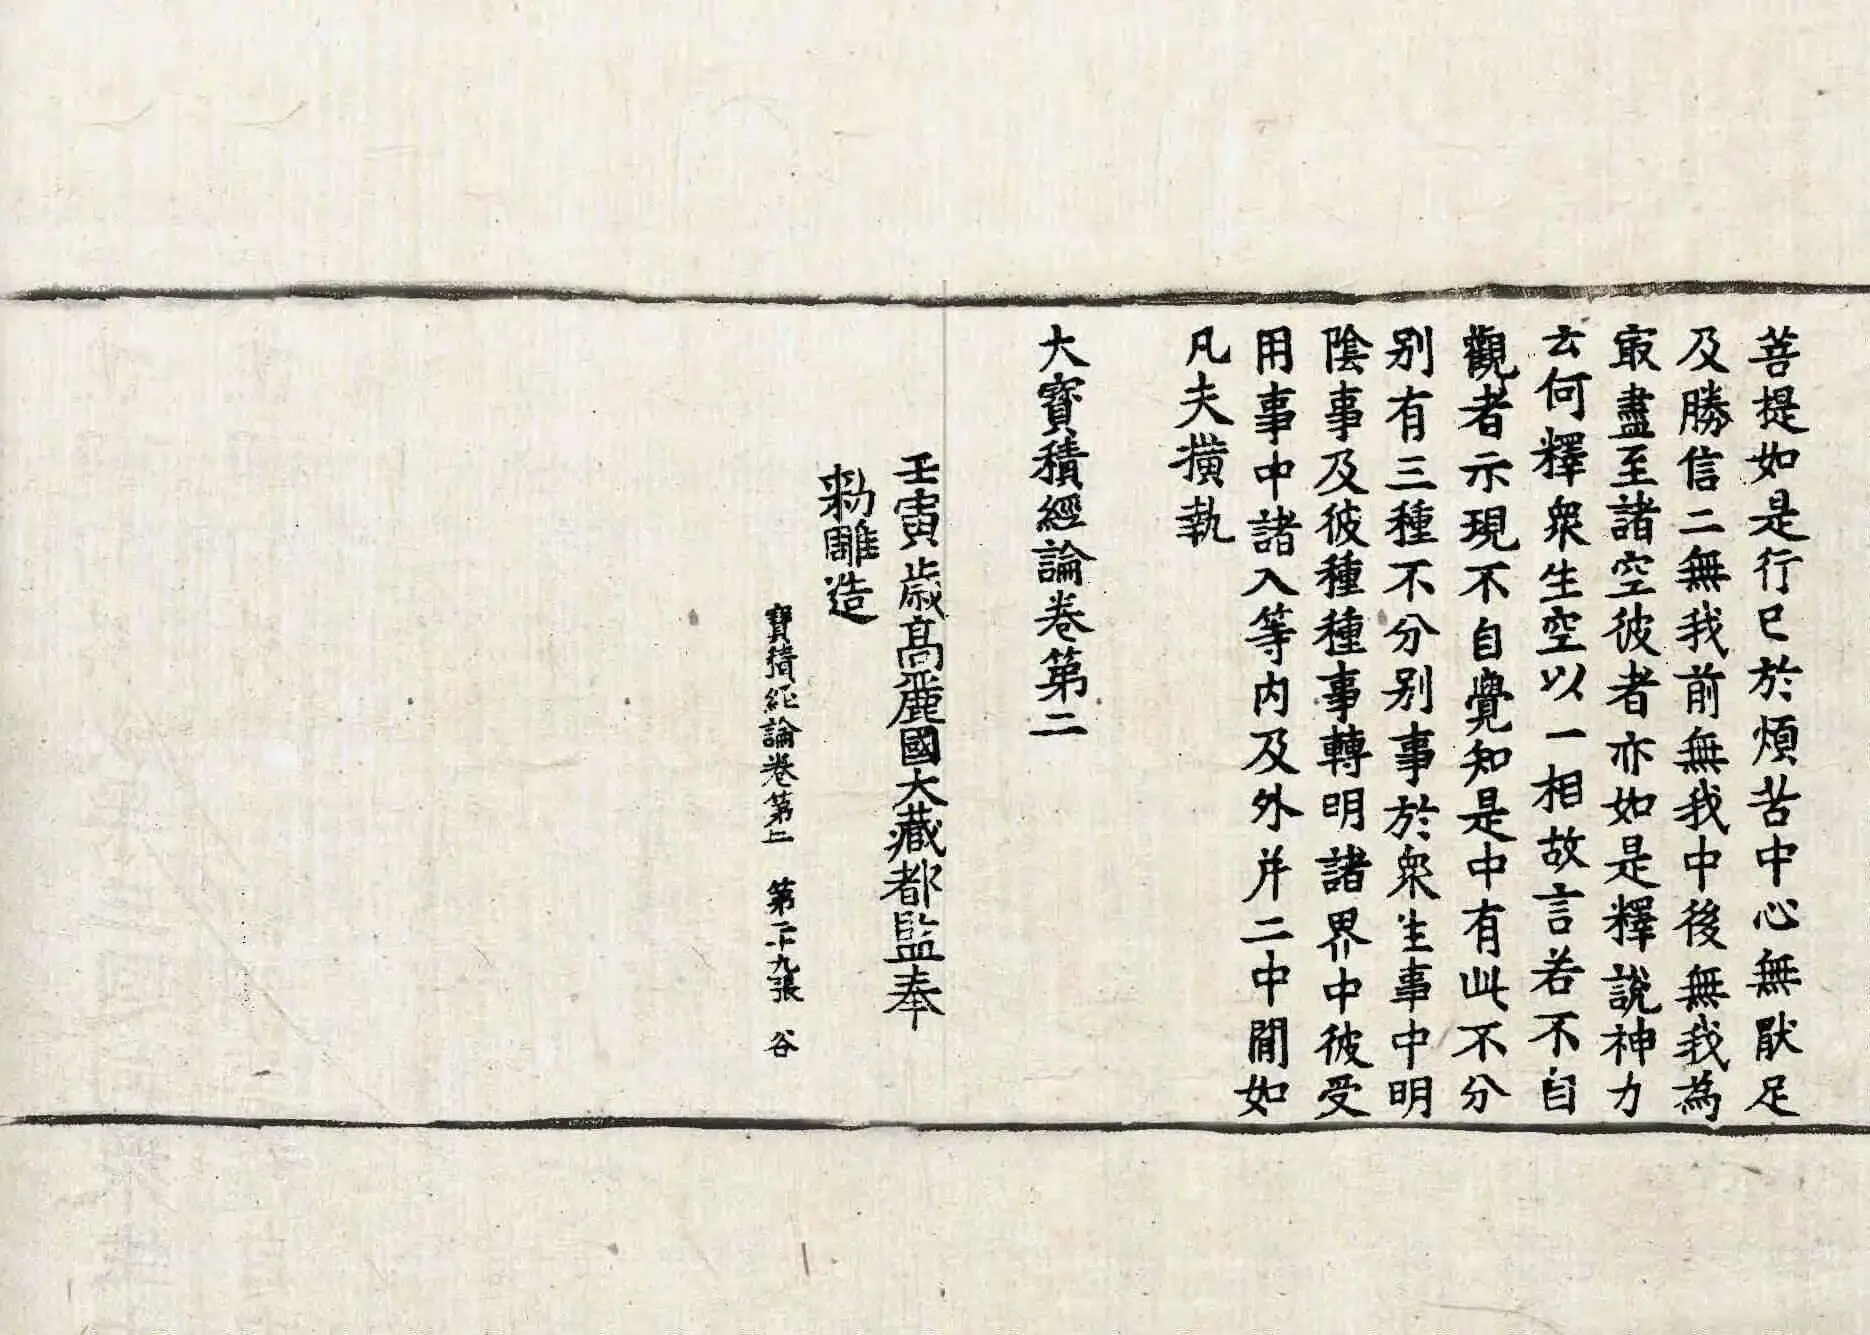 菩提如是行已於煩苦中心無猒足
及勝信二無我前無我中後無我為
㝡盡至諸空彼者亦如是釋說神力
云何釋衆生空以一相故言若不自
觀者示現不自覺知是中有此不分
别有三種不分别事於衆生事中明
陰事及彼種種事轉明諸界中彼受
用事中諸入等内及外并二中閒如
凡夫撗執
大寶積經論卷第二
壬寅歲高麗國大藏都監奉
勑雕造
寶積經論卷第二 第二十九張 谷